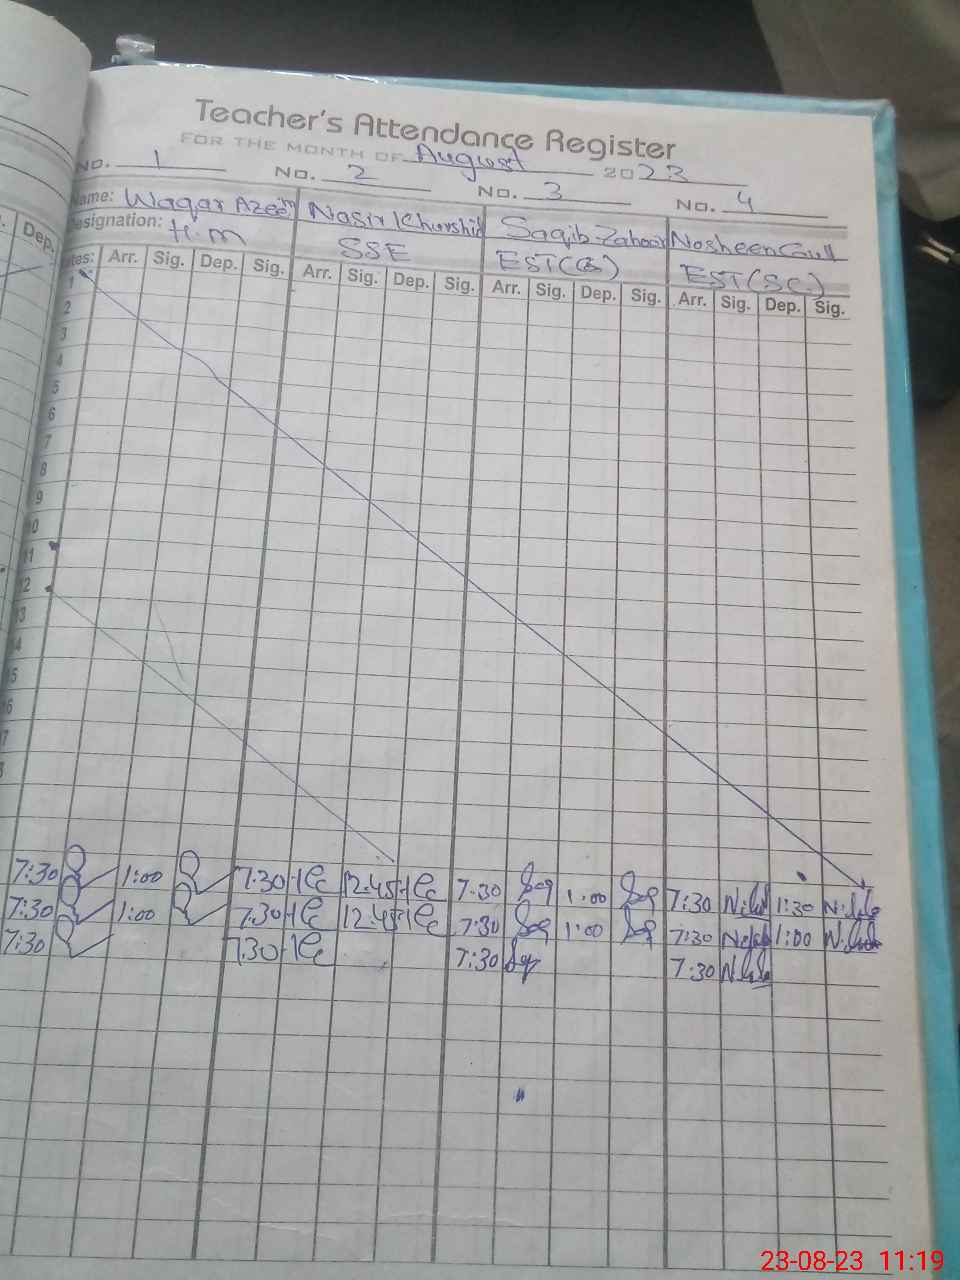 Teacher's Attendance Register
FOR THE MONTH OF August 2023
No. 1 No. 2 No. 3 No. 4
Name: Waqar Azeem Nasir Khurshid Saqib Zahoor Nosheen Gull
Designation: H.M SSE EST(CS) EST(SC)
Dep.
Arr. Sig. Dep. Sig. Arr. Sig. Dep. Sig. Arr. Sig. Dep. Sig. Arr. Sig. Dep. Sig.
1
2
3
4
5
6
7
8
9
10
11
12
13
14
15
16
7:30 1:00 7:30 12:45 7:30 1:00 7:30 1:30
7:30 1:00 7:30 12:45 7:30 1:00 7:30 1:00
7:30 7:30 7:30 7:30
23-08-23 11:19